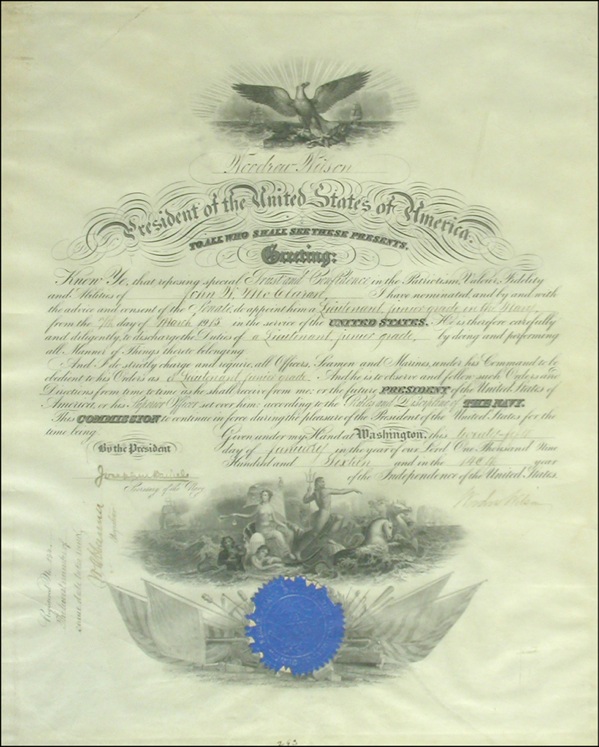 Woodrow Wilson
President of the United States of America.
TO ALL WHO SHALL SEE THESE PRESENTS,
Greeting:
Know Ye, that reposing special Trust and Confidence in the Patriotism, Valour, Fidelity
and Abilities of John W. I have nominated, and by and with
the advice and consent of the Senate, do appoint him a Lieutenant junior grade in the Navy
from the 7th day of March 1915 in the service of the UNITED STATES. He is therefore carefully
and diligently to discharge the Duties of a Lieutenant junior grade, by doing and performing
all Manner of Things thereto belonging.
And I do strictly charge and require, all Officers, Seamen and Marines, under his Command to be
obedient to his Orders as a Lieutenant junior grade. And he is to observe and follow such Orders and
Directions from time to time as he shall receive from me, or the future PRESIDENT of the United States of
America, or his Superior Officer set over him, according to the Rules and Discipline of THE NAVY.
This COMMISSION to continue in force during the pleasure of the President of the United States for the
time being.
Given under my Hand at Washington, this twenty-
By the President
day of January in the year of our Lord One Thousand Nine
Hundred and Sixteen and in the 140th year
of the Independence of the United States.
Josephus Daniels
Secretary of the Navy.
Woodrow Wilson